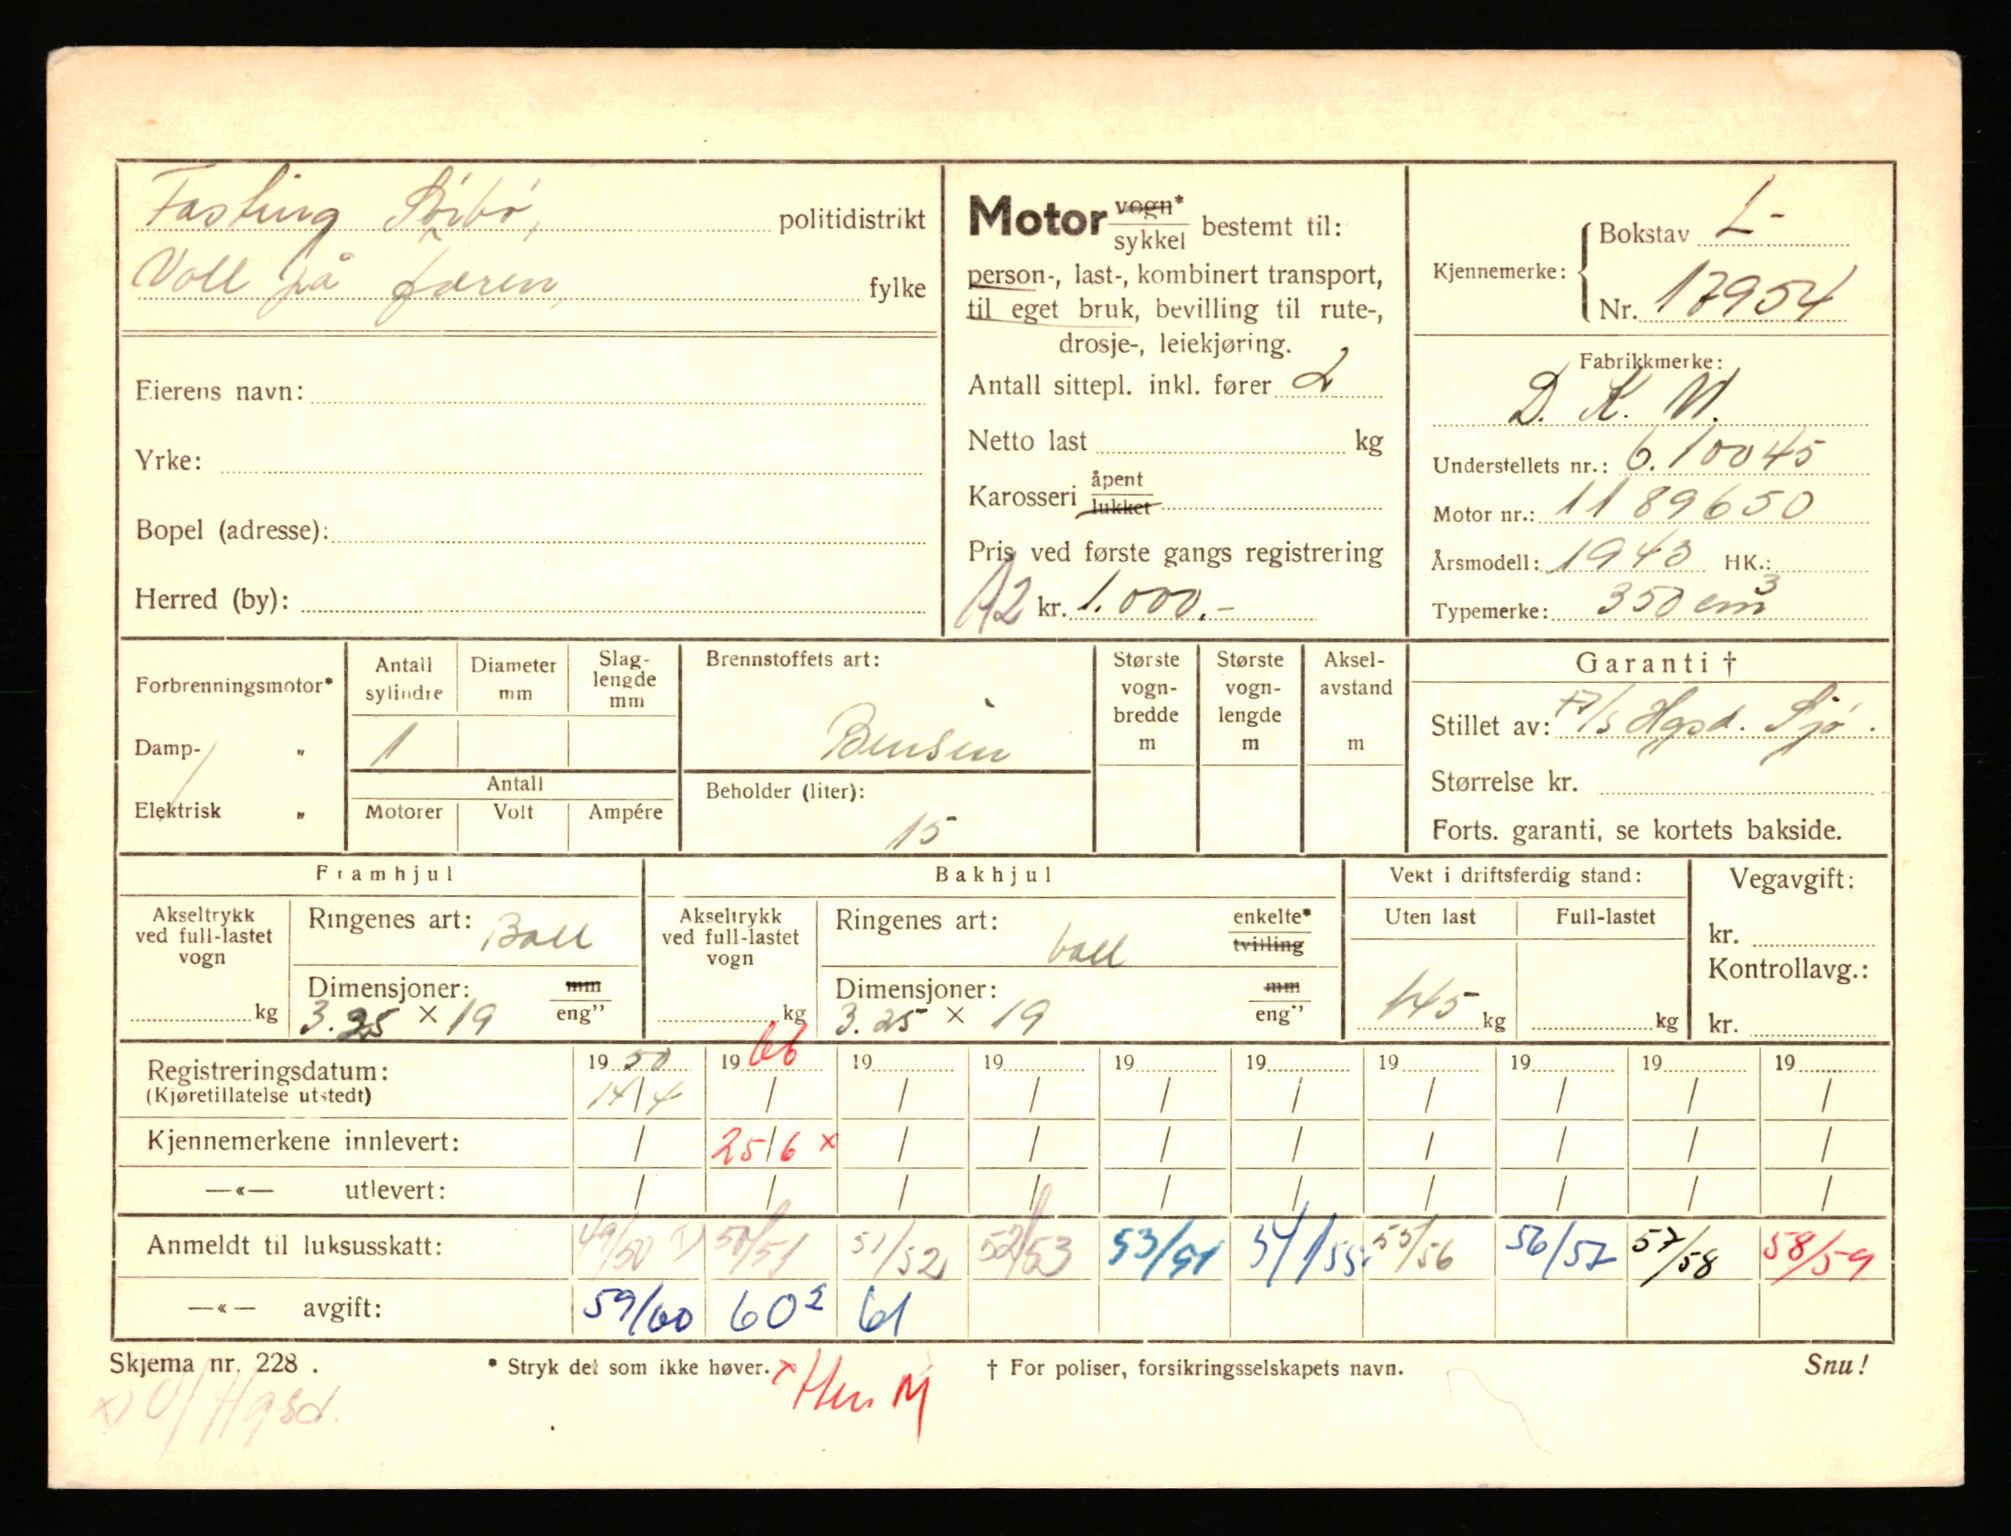 Fasting Sörbö, politidistrikt
Voll på Jæren, fylke
Eierens navn:
Yrke:
Bopel (adresse):
Herred (by):
Motor vogn* sykkel bestemt til:
person-, last-, kombinert transport,
til eget bruk, bevilling til rute-,
drosje-, leiekjøring.
Antall sittepl. inkl. fører 2
Netto last kg
Karosseri åpent lukket
Pris ved første gangs registrering
A2 kr. 1.000.-
Kjennemerke: Bokstav L-
Nr. 17954
Fabrikkmerke:
D. K. W.
Understellets nr.: 6.10045
Motor nr.: 1189650
Årsmodell: 1943 HK.:
Typemerke: 350 cm3
Forbrenningsmotor*
Damp- "
Elektrisk "
Antall sylindre
Diameter mm
Slag-lengde mm
1
Antall
Motorer Volt Ampére
Brennstoffets art:
Bensin
Beholder (liter):
15
Største vogn-bredde m
Største vogn-lengde m
Aksel-avstand m
Garanti †
Stillet av: Hgsd. Sjø.
Størrelse kr.
Forts. garanti, se kortets bakside.
Framhjul
Akseltrykk ved full-lastet vogn
kg
Ringenes art: Ball
Dimensjoner: mm eng"
3.25 × 19
Bakhjul
Akseltrykk ved full-lastet vogn
kg
Ringenes art: ball enkelte* tvilling
Dimensjoner: mm eng"
3.25 × 19
Vekt i driftsferdig stand:
Uten last Full-lastet
145 kg kg
Vegavgift:
kr.
Kontrollavg.:
kr.
Registreringsdatum: 19 50 19 66 19 19 19 19 19 19 19 19
(Kjøretillatelse utstedt) 14/4 / / / / / / / / /
Kjennemerkene innlevert: / 25/6 x / / / / / / / /
—«— utlevert: / / / / / / / / / /
Anmeldt til luksusskatt: 49/50 50/51 51/52 52/53 53/54 54/55 55/56 56/57 57/58 58/59
—«— avgift: 59/60 60 61
Skjema nr. 228 . * Stryk det som ikke høver. x † For poliser, forsikringsselskapets navn. Snu!
Hgsd.